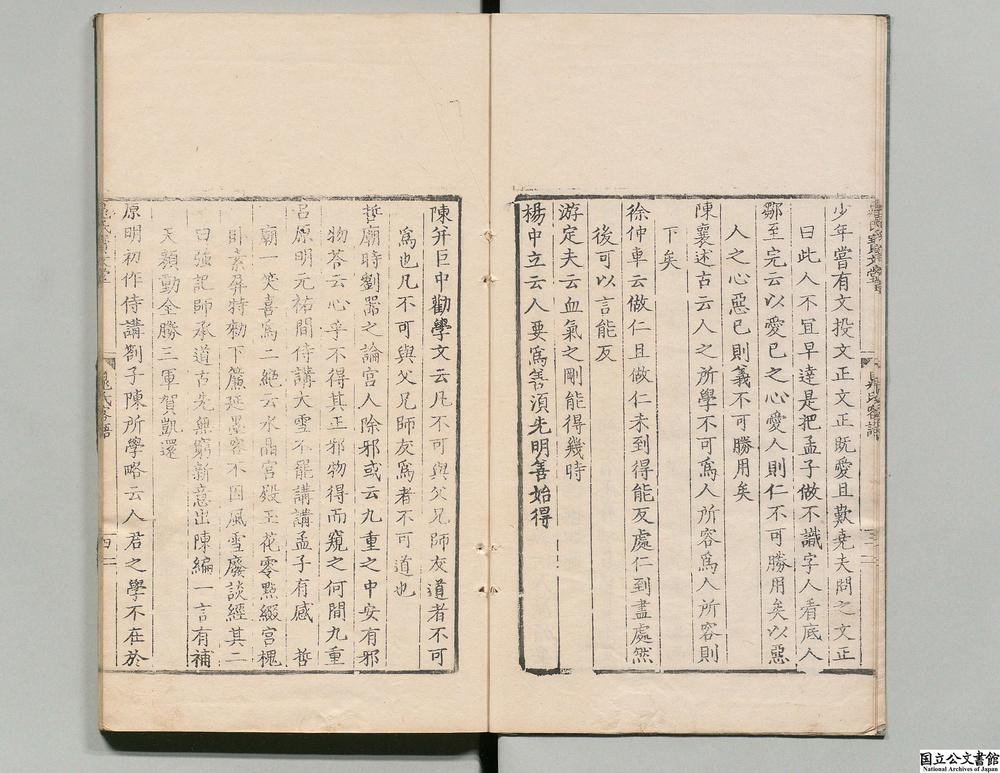 少年嘗有文投文正文正既愛且歎堯夫問之文正
曰此人不冝早達是把孟子做不識字人看底人
鄒至完云以愛已之心愛人則仁不可勝用矣以惡
人之心惡已則義不可勝用矣
陳襄述古云人之所學不可爲人所容爲人所容則
下矣
徐仲車云做仁且做仁未到得能反處仁到盡處然
後可以言能反
游定夫云血氣之剛能得幾時
楊中立云人要爲善須先明善始得
陳弁巨中勸學文云凡不可與父兄師友道者不可
爲也凡不可與父兄師友爲者不可道也
哲廟時劉器之論宮人除邪或云九重之中安有邪
物答云心苹不得其正邪物得而窺之何間九重
吕原明元祐間侍講大雪不罷講講孟子有感 哲
廟一笑喜爲二絶云水晶宮殿玉花零㸃綴宮槐
卧素屏特勑下簾延墨客不因風雪廢談經其二
曰强記師承道古先無窮新意出陳編一言有補
天顔動全勝三軍賀凱還
原明初作侍講劄子陳所學略云人君之學不在於
晁氏客語
四
国立公文書館
National Archives of Japan